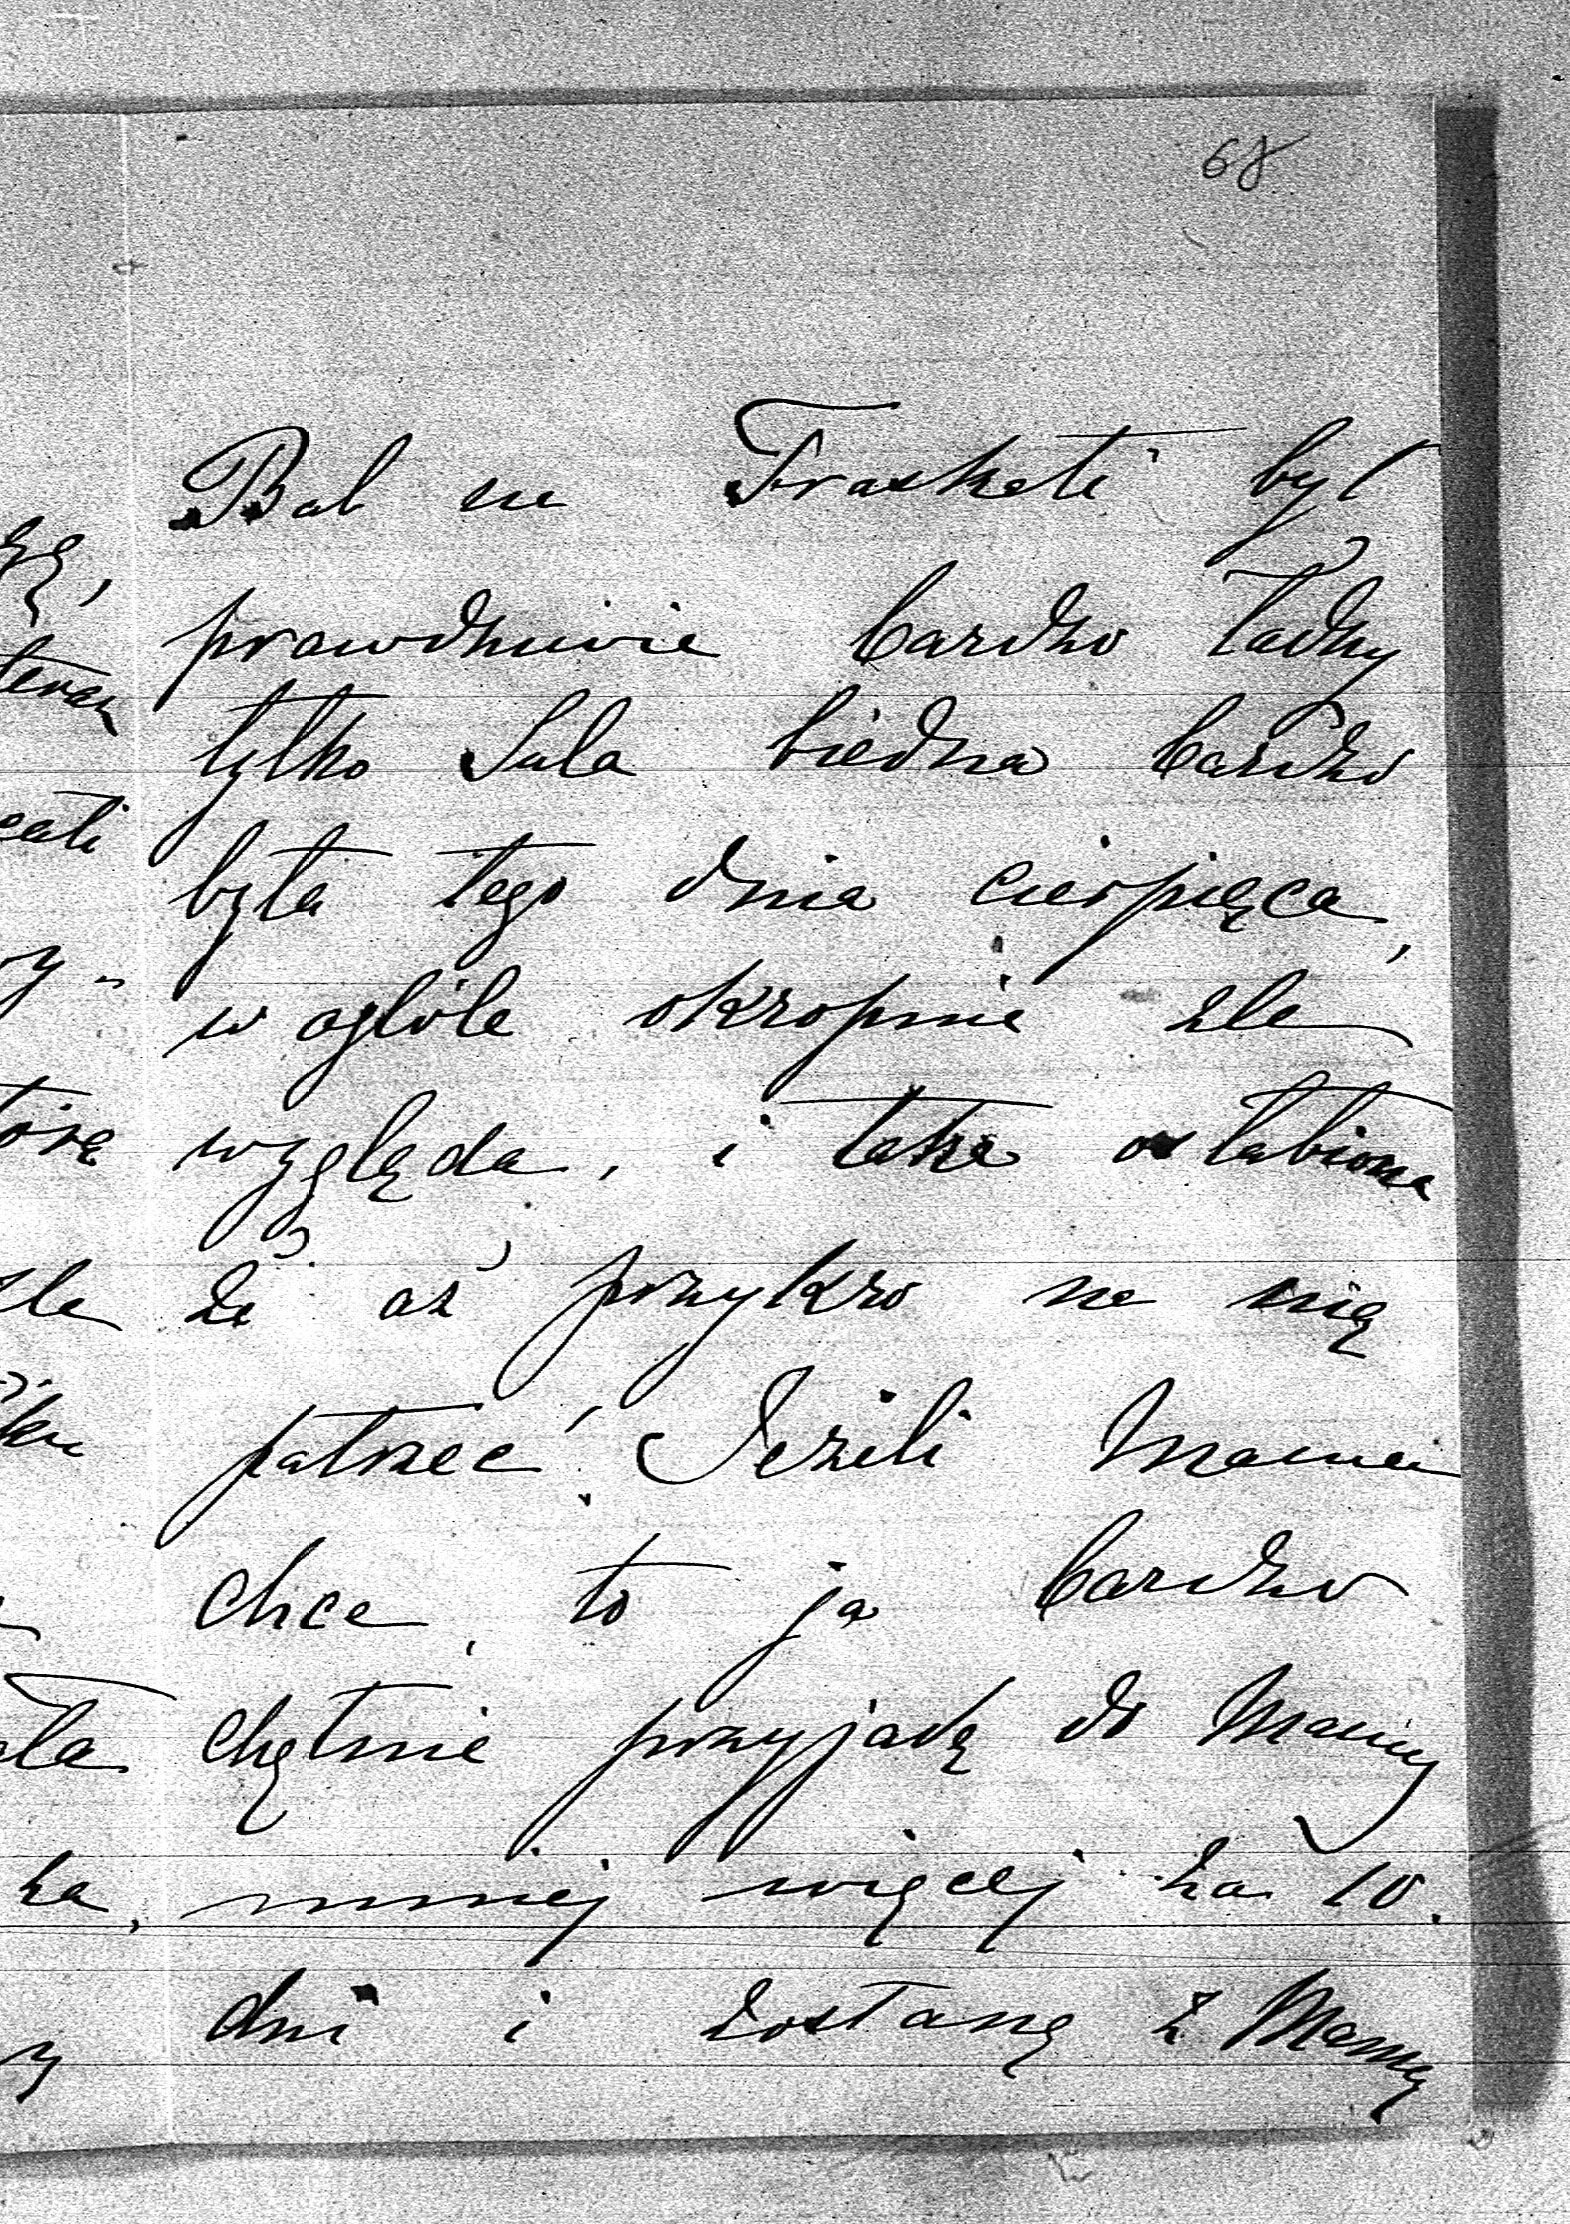 68
Bal na Frasketi był
prawdziwie bardzo ładny
tylko Sala biedna bardzo
była tego dnia cierpiąca,
w ogóle okropnie źle
wygląda, i taka osłabiona
że aż przykro na nią
patrzeć. Jeżeli Mama
chce, to ja bardzo
chętnie przyjadę do Mamy
mniej więcej za 10.
dni i zostanę z Mamą